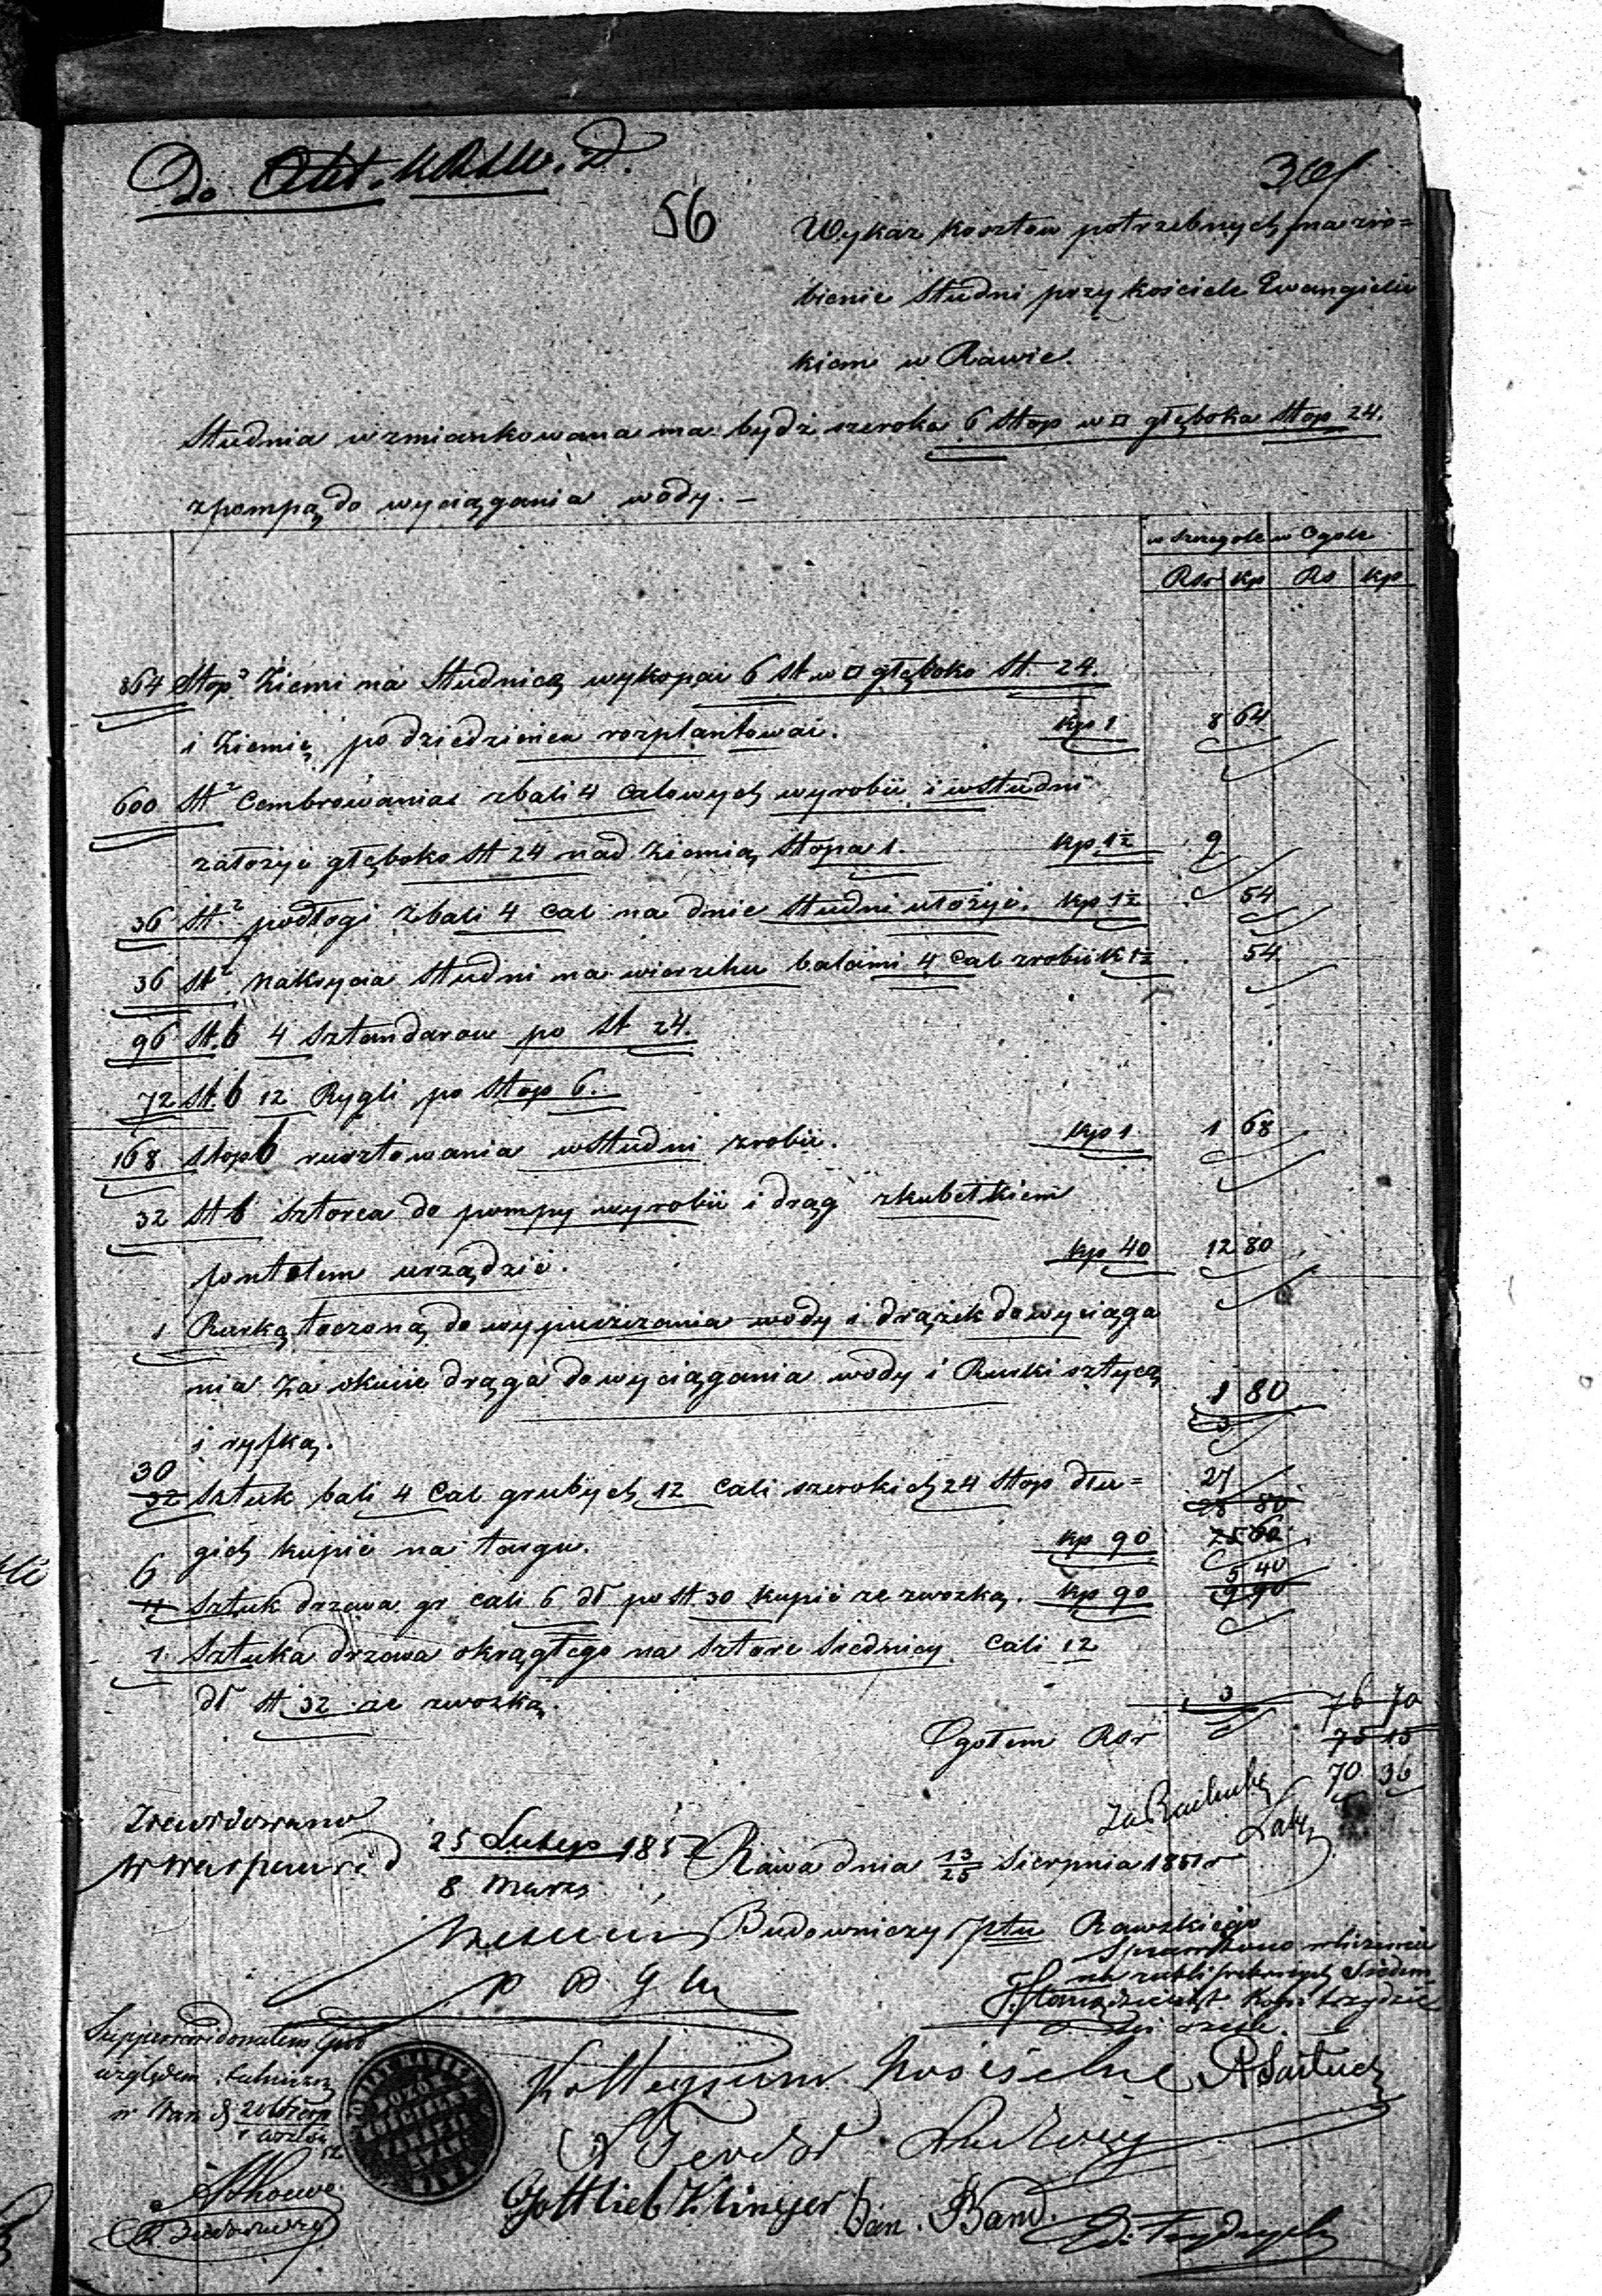 Do
56
Wykaz kosztow potrzebnych na zro=
bienie Studni przy kościele Ewangielic
kiem w Rawie.
Studnia wzmiankowana ma bydź szeroka 6 Stop w □ głęboka Stop 24.
z pompą do wyciągania wody. —
w szczegole w Ogole
Rsr kp Rs kp
864 Stop³ Ziemi na Studnią wykopać 6 St w □ głęboko St. 24.
i Ziemię po dziedzieńcu rozplantować. kp 1 8 64
600 St² Cembrowania z bali 4 calowych wyrobić i w Studni
założyć głęboko St 24 nad Ziemią Stopa 1. kp 1½ 9
36 St² podłogi z bali 4 cal na dnie Studni ułożyć. kp 1½ 54
36 St² nakrycia Studni na wierzchu balami 4 cal zrobić k 1½ 54
96 St. b 4 Sztandarow po St 24.
72 St. b 12 Rygli po Stop 6.
168 Stop b rusztowania w Studni zrobić. kp 1 1 68
32 St b Sztorca do pompy wyrobić i drąg z kubełkiem
urządzić. kp 40 12 80
1 Rurką toczoną do wypuszczania wody i drążek do wyciąga
nia Za okucie drąga do wyciągania wody i Rurki sztycą
1 80
3
i ryfką.
30
32 Sztuk bali 4 Cal grubych 12 cali szerokich 24 Stop dłu= 27
28 80
gich kupić na targu. kp 90 25 60
6 5 40
11 Sztuk drzewa gr cali 6 dł po St 30 kupić ze zwozką. kp 90 9 90
1 Sztuka drzewa okrągłego na Sztorc Srednicy Cali 12
dł St 32 ze zwozką. 3 76 70
Ogołem Rsr 75 15
70 36
Za Rachubę
Zrewidowano
w Warszawie d 25 Lutego 1852
8 Marca
Rawa dnia 13/25 Sierpnia 1851 r
Budowniczy Ptu Rawskiego
Sprawdzono
Kollegium Kościelne
Teodor Ludwig
Gottlieb Klinger Dan. Band.